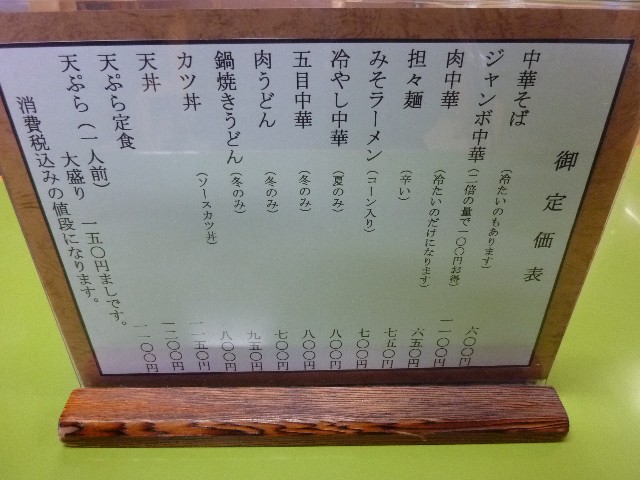 御定価表
中華そば（冷たいのもあります） 六〇〇円
ジャンボ中華（二倍の量で一〇〇円お得） 一一〇〇円
肉中華（冷たいのだけになります） 六五〇円
担々麺（辛い） 七五〇円
みそラーメン（コーン入り） 七〇〇円
冷やし中華（夏のみ） 八〇〇円
五目中華（冬のみ） 八〇〇円
肉うどん（冬のみ） 七〇〇円
鍋焼きうどん（冬のみ） 九五〇円
カツ丼（ソースカツ丼） 八〇〇円
天丼 一一五〇円
天ぷら定食 一二〇〇円
天ぷら（一人前） 一一〇〇円
大盛り 一五〇円ましです。
消費税込みの値段になります。